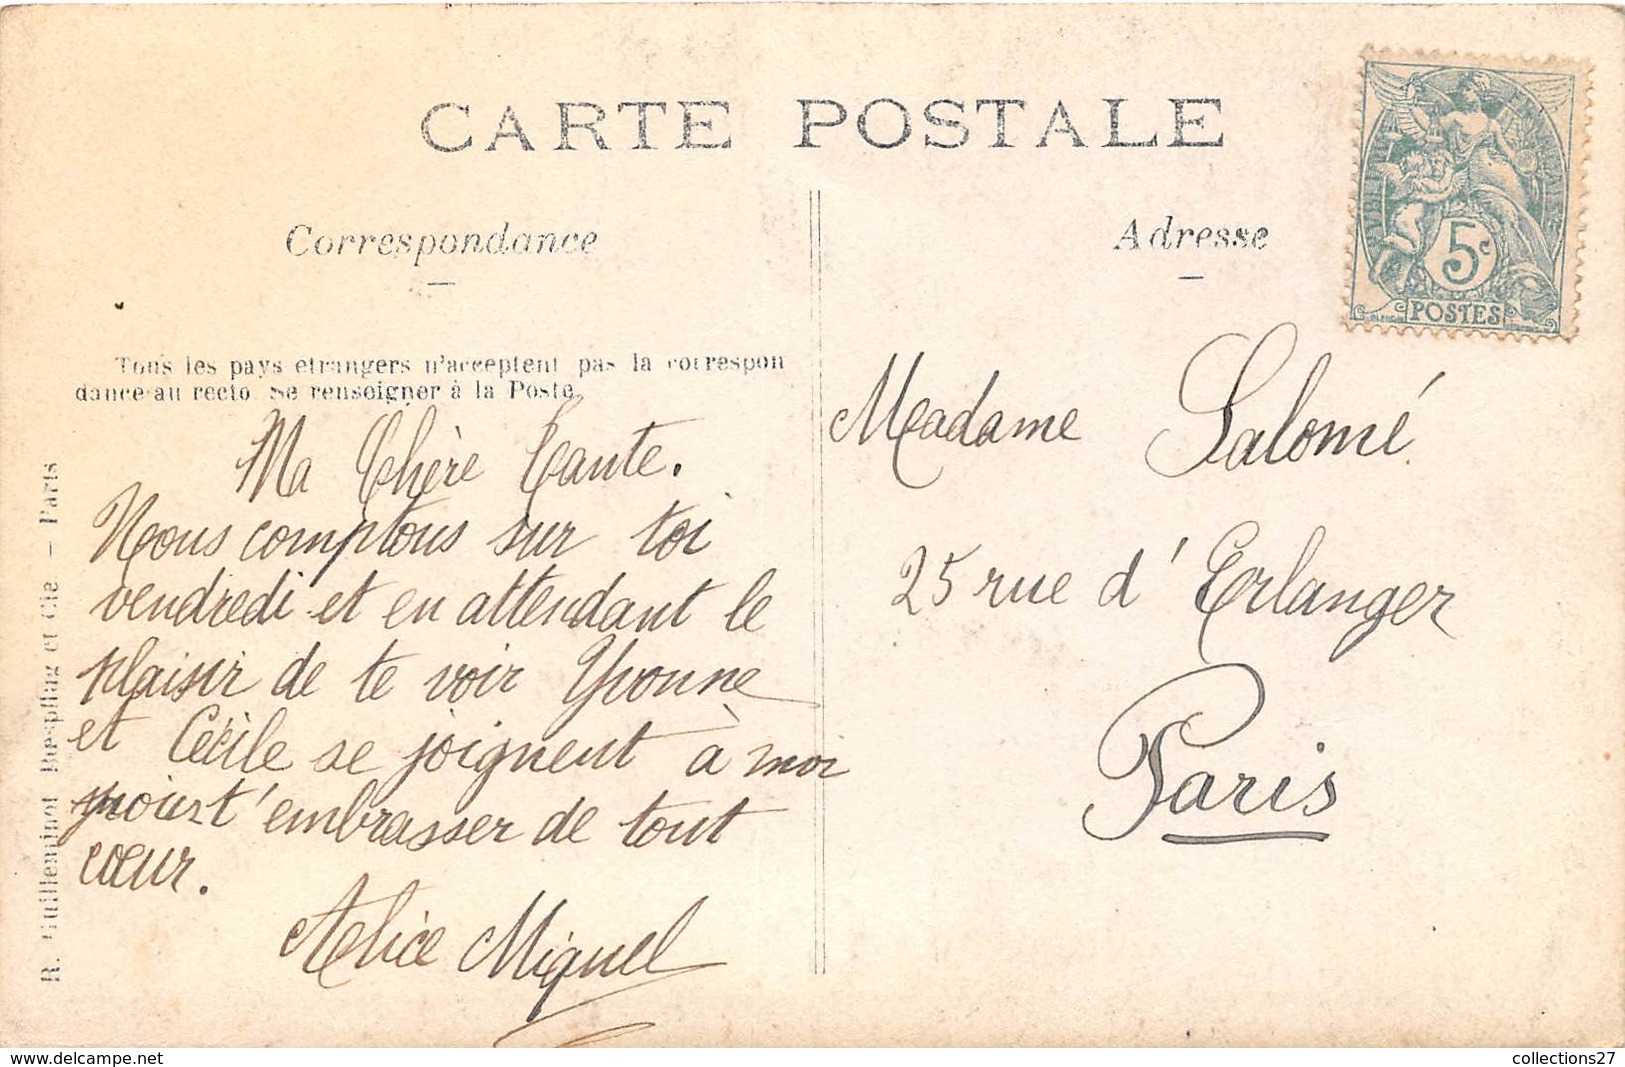 CARTE POSTALE
Correspondance
Adresse
5c
POSTES
Tous les pays étrangers n'acceptent pas la correspon
dance au recto. Se renseigner à la Poste.
Ma Chère Tante.
Nous comptons sur toi
vendredi et en attendant le
plaisir de te voir Yvonne
et Cécile se joignent à moi
pour t'embrasser de tout
cœur.
Alice Miquel
Madame Salomé
25 rue d'Erlanger
Paris
R. Guilleminot Bœspflug et Cie – Paris
collections27